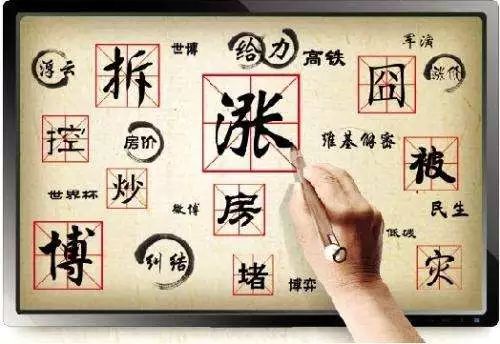 浮云
拆
世博
给力
高铁
军演
囧
涨价
控
房价
涨
维基解密
被
世界杯
炒
微博
房
民生
博
纠结
堵
博弈
低碳
灾